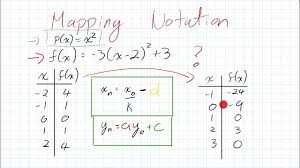 Mapping Notation
→ P(x) = x²
→ f(x) = -3(x-2)² + 3 ?
x | f(x)
-2 | 4
-1 | 1
0 | 0
1 | 1
2 | 4
xₙ = xₒ - d / k
yₙ = ayₒ + c
x | f(x)
-1 | -24
0 | -9
1 | 0
2 | 3
3 | 0